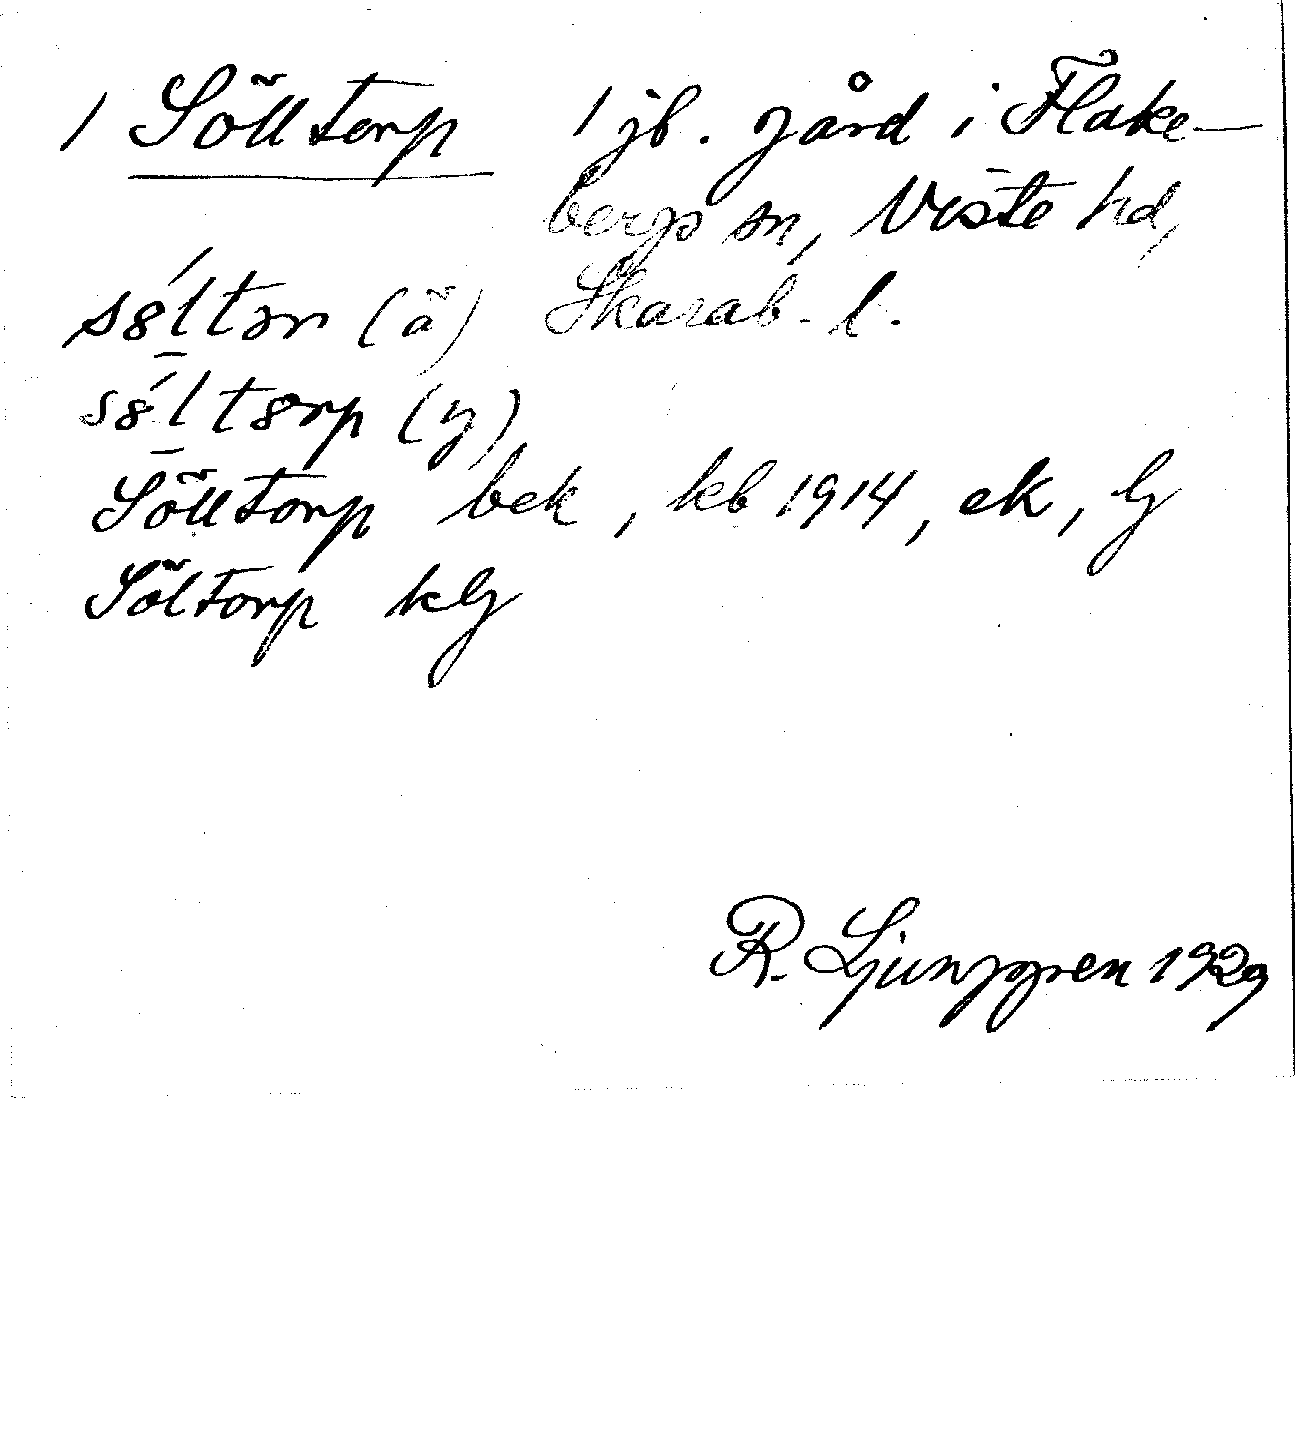 1 Sölltorp 1 jb. gård i Flake-
bergs sn, Viste hd,
Skarab. l.
sɵ́ltɔr (ä)
sɵ́ltɵrp (y)
Sölltorp bek, kb 1914, ek, lj
Söltorp klj
R. Ljunggren 1929